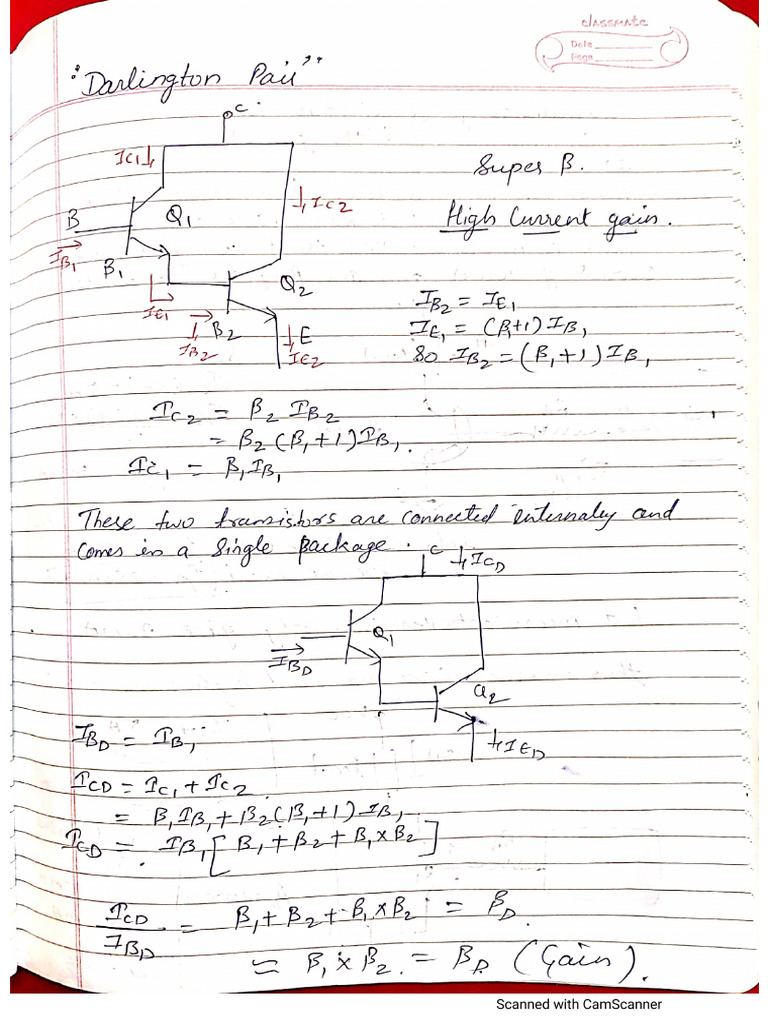 classmate
Date
Page
"Darlington Pair"
C
IC1
IC2
Super β.
High Current gain.
B
Q1
IB1
β1
Q2
IE1
IB2
β2
E
IE2
IB2 = IE1
IE1 = (β1+1) IB1
So IB2 = (β1+1) IB1
IC2 = β2 IB2
= β2 (β1+1) IB1.
IC1 = β1 IB1
These two transistors are connected internaley and
comes in a single package.
C
ICD
Q1
IBD
Q2
IED
IBD = IB1
ICD = IC1 + IC2
= β1 IB1 + β2 (β1+1) IB1
ICD = IB1 [ β1 + β2 + β1 × β2 ]
ICD / IBD = β1 + β2 + β1 × β2 = βD
≃ β1 × β2 = βD (Gain).
Scanned with CamScanner